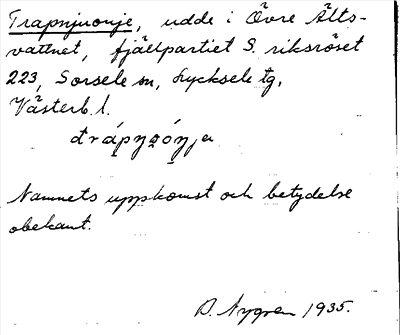 Trapnjuonje, udde i Övre Älts-
vattnet, fjällpartiet S. riksröset
223, Sorsele sn, Lycksele tg,
Västerb. l.
Namnets uppkomst och betydelse
obekant.
D. Nygren 1935.